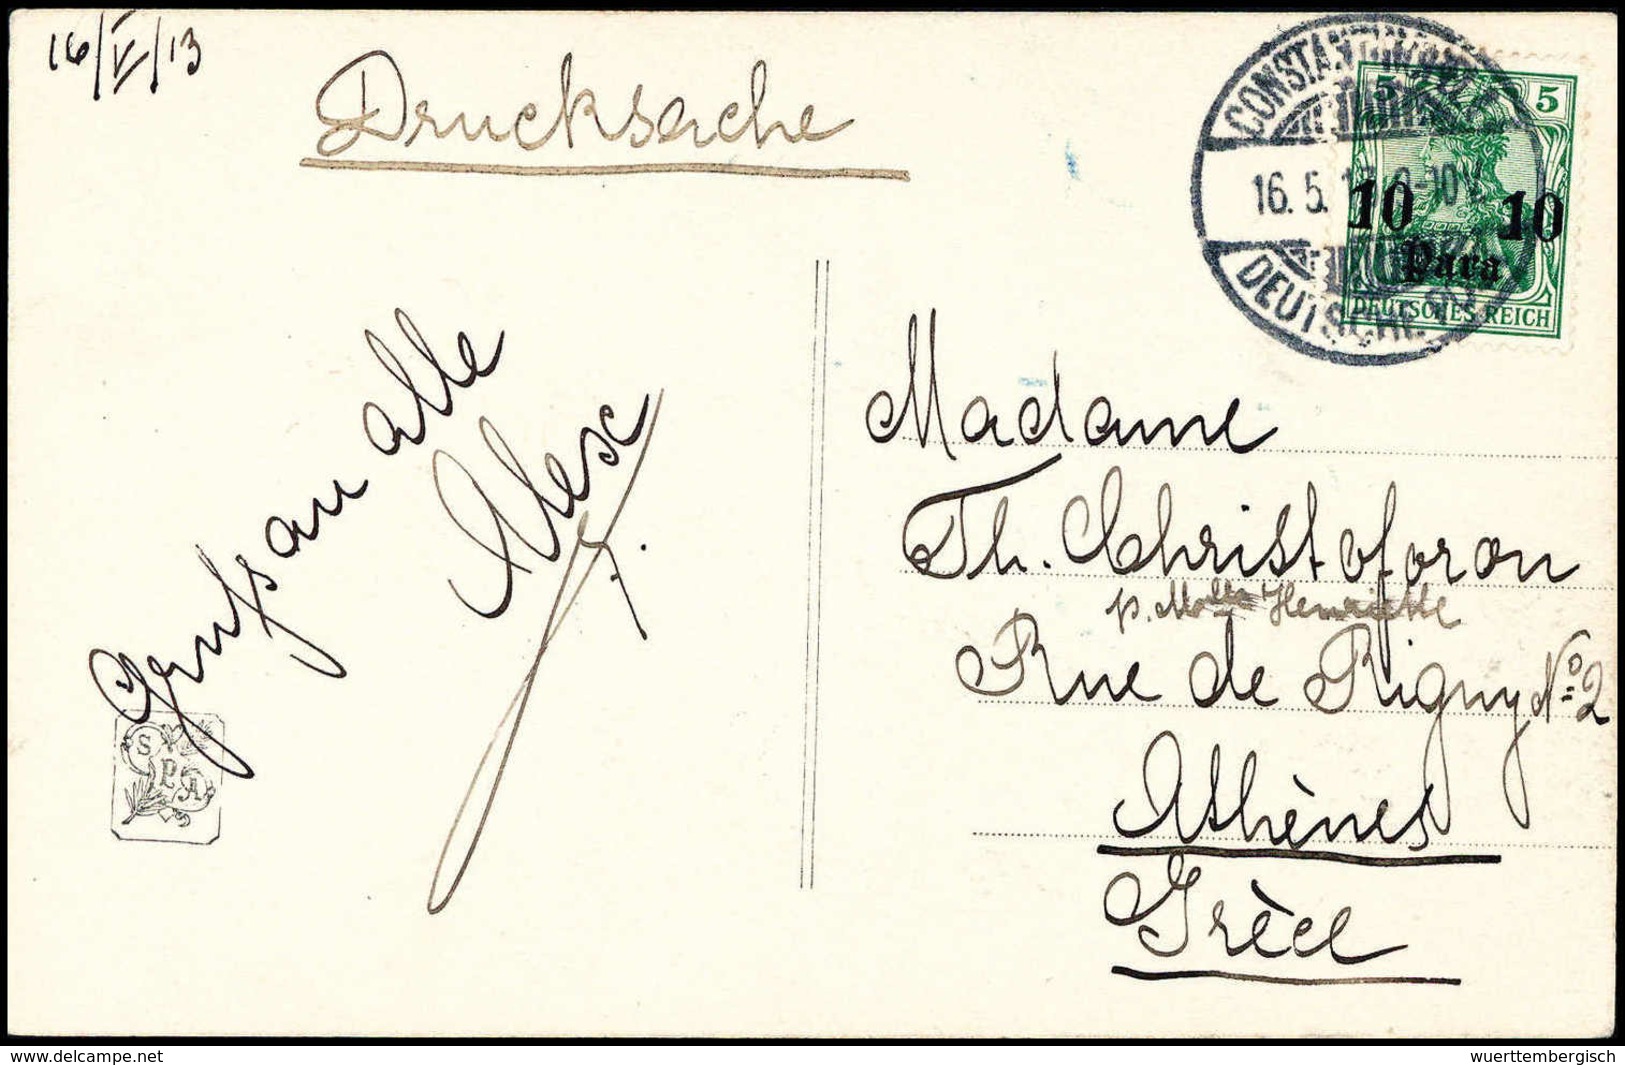 16/V/13
Drucksache
CONSTANTINOPEL
16. 5. 13. 9-10 V.
DEUTSCHE POST
5 5
10 10
Para
DEUTSCHES REICH
Gruß an alle
Alex
Madame
Th. Christoforou
p. Henriette
Rue de Rigny No 2
Athènes
Grèce
S
P
A
© by
delcampe.net
wuerttembergisch